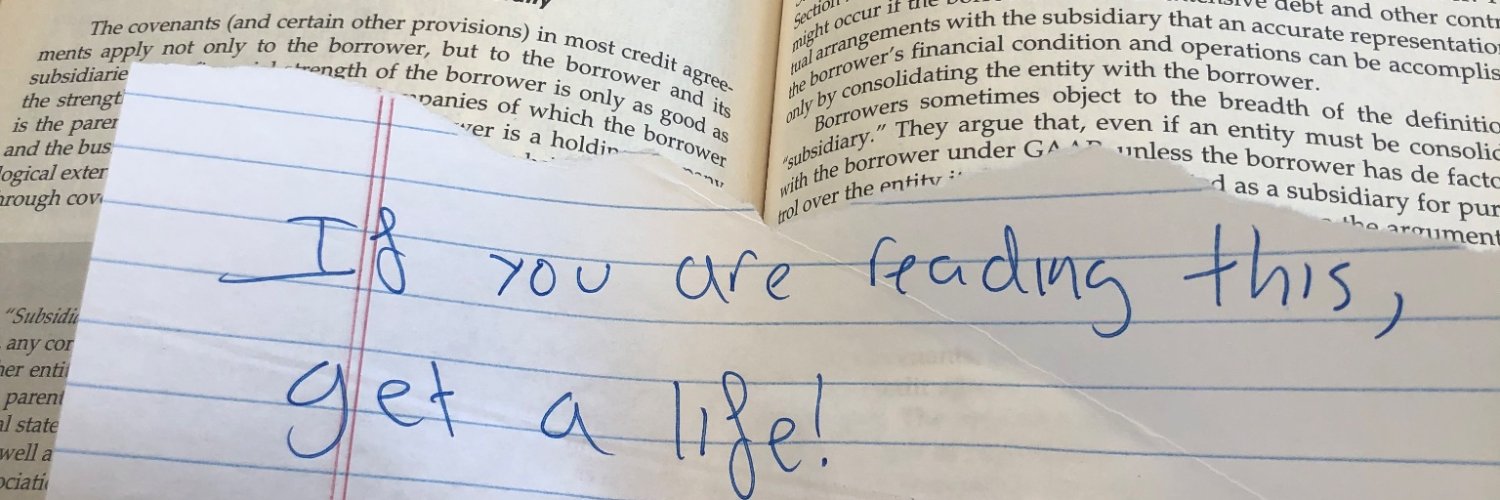 The covenants (and certain other provisions) in most credit agree-
ments apply not only to the borrower, but to the borrower and its
subsidiarie
strength of the borrower is only as good as
the strengt
of which the borrower
is the paren
is a holdin
and the bus
logical exter
rough cov
"Subsidia
any cor
her enti
parent
al state
well a
ociatio
Section
might occur if the
debt and other contr
tual arrangements with the subsidiary that an accurate representation
the borrower's financial condition and operations can be accomplis
only by consolidating the entity with the borrower.
Borrowers sometimes object to the breadth of the definitio
"subsidiary." They argue that, even if an entity must be consolid
with the borrower under GAAP unless the borrower has de facto
trol over the entity
as a subsidiary for pur
the argument
If you are reading this,
get a life!